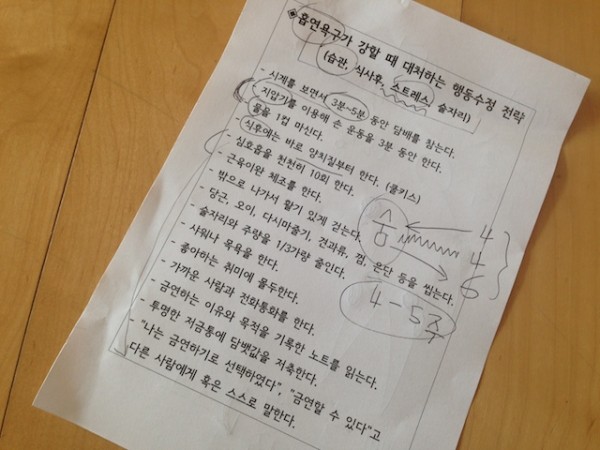 ◈흡연욕구가 강할 때 대처하는 행동수정 전략
(습관, 식사후, 스트레스, 술자리)
- 시계를 보면서 3분~5분 동안 담배를 참는다.
- 지압기를 이용해 손 운동을 3분 동안 한다.
- 물을 1컵 마신다.
- 식후에는 바로 양치질부터 한다. (쿨키스)
- 심호흡을 천천히 10회 한다.
- 근육이완 체조를 한다.
- 밖으로 나가서 활기 있게 걷는다.
- 당근, 오이, 다시마줄기, 견과류, 껌, 은단 등을 씹는다.
- 술자리와 주량을 1/3가량 줄인다.
- 샤워나 목욕을 한다.
- 좋아하는 취미에 몰두한다.
- 가까운 사람과 전화통화를 한다.
- 금연하는 이유와 목적을 기록한 노트를 읽는다.
- 투명한 저금통에 담뱃값을 저축한다.
- "나는 금연하기로 선택하였다", "금연할 수 있다"고
다른 사람에게 혹은 스스로 말한다.
숨
4
4
6
4-5주